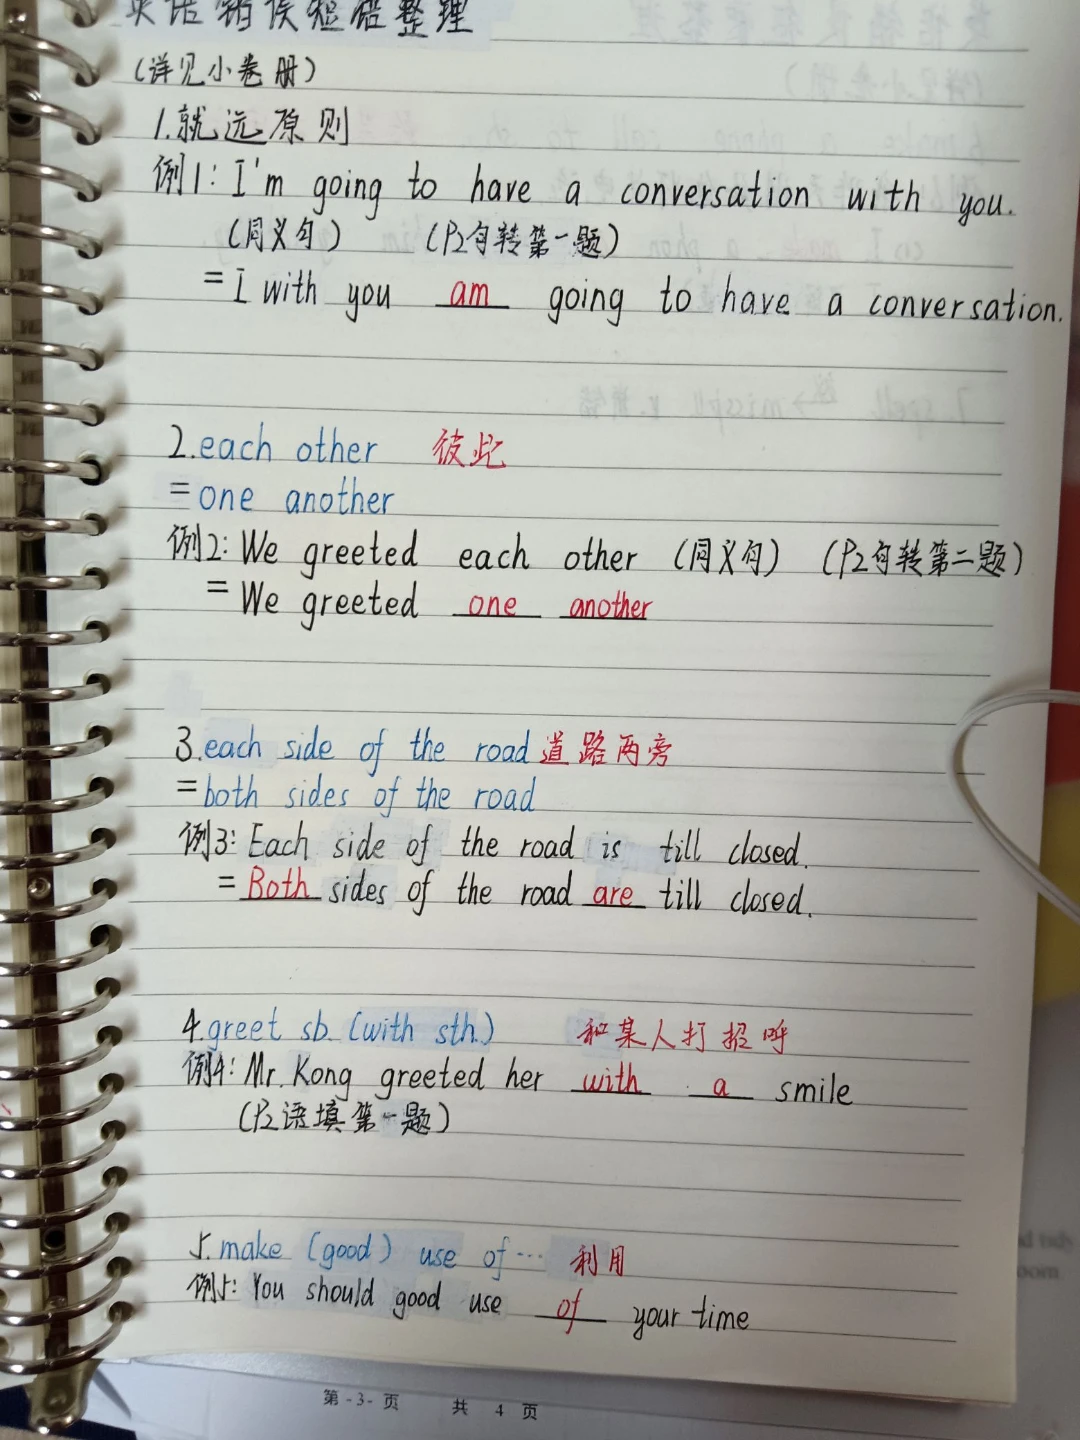 英语错误短语整理
(详见小卷册)
1.就远原则
例1: I'm going to have a conversation with you.
(同义句) (P2句转第一题)
=I with you am going to have a conversation.
2.each other 彼此
=one another
例2: We greeted each other (同义句) (P2句转第二题)
=We greeted one another
3.each side of the road 道路两旁
=both sides of the road
例3: Each side of the road is till closed.
=Both sides of the road are till closed.
4.greet sb. (with sth.) 和某人打招呼
例4: Mr. Kong greeted her with a smile
(P2语填第一题)
5.make (good) use of… 利用
例5: You should good use of your time
第-3-页 共 4 页